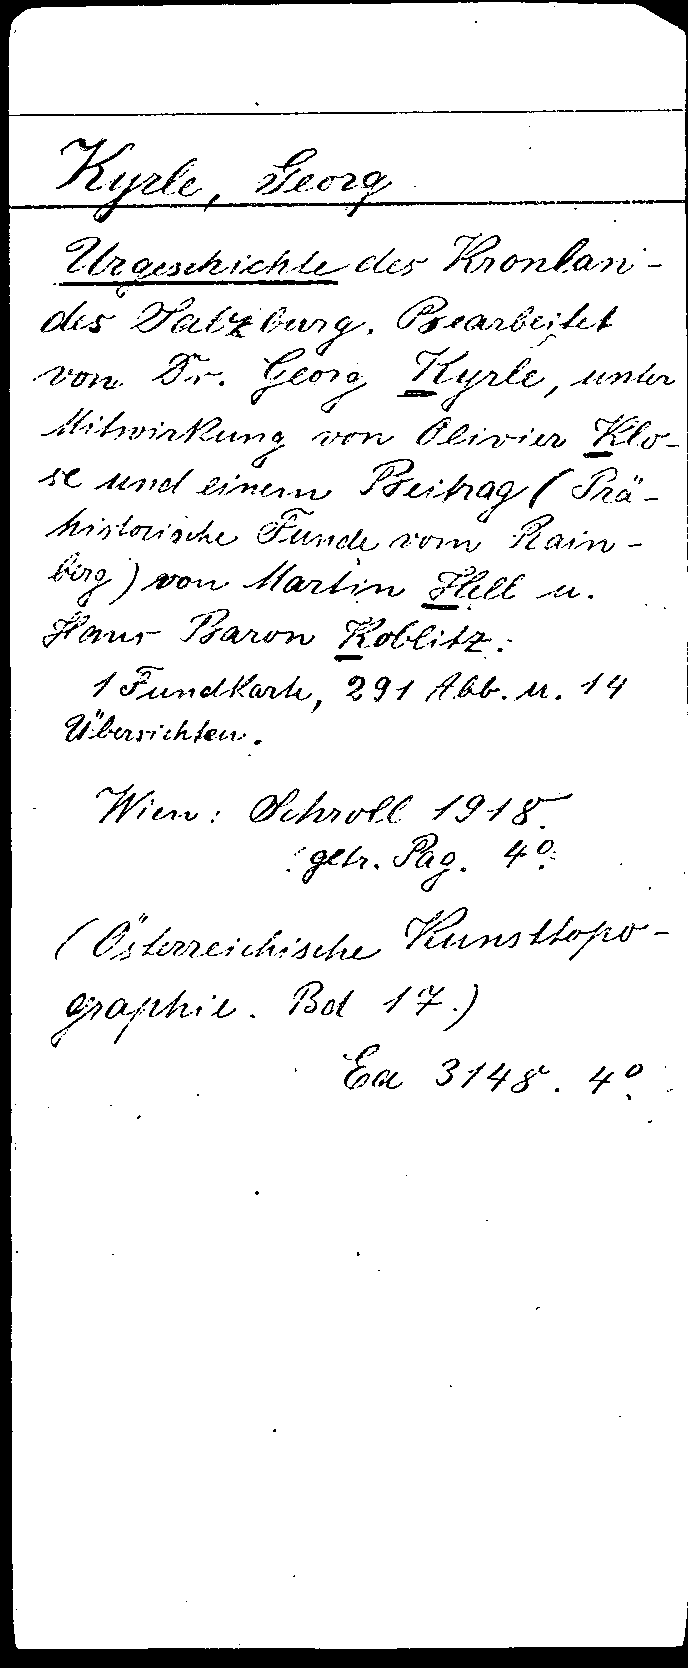 Kyrle, Georg
Urgeschichte des Kronlan-
des Salzburg. Bearbeitet
von Dr. Georg Kyrle, unter
Mitwirkung von Olivier Klo-
se und einem Beitrag (Prä-
historische Funde vom Rain-
berg) von Martin Hell u.
Hans Baron Koblitz.
1 Fundkarte, 291 Abb. u. 14
Übersichten.
Wien: Schroll 1918.
getr. Pag. 4°.
(Österreichische Kunsttopo-
graphie. Bd 17.)
Ea 3148. 4°.